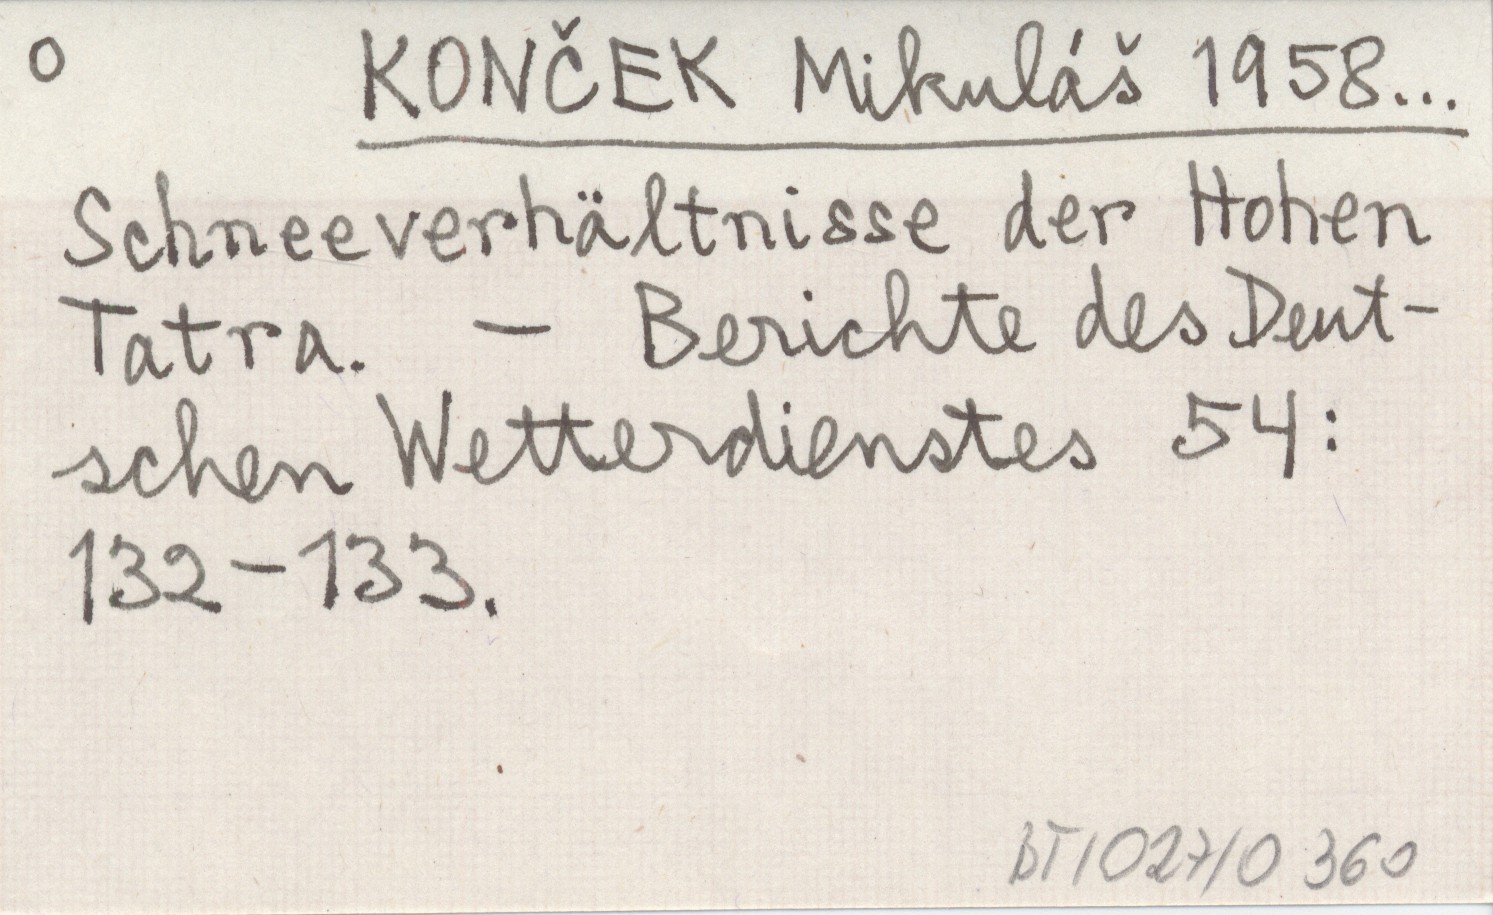 o KONČEK Mikuláš 1958...
Schneeverhältnisse der Hohen
Tatra. — Berichte des Deut-
schen Wetterdienstes 54:
132-133.
BT/027/0 360